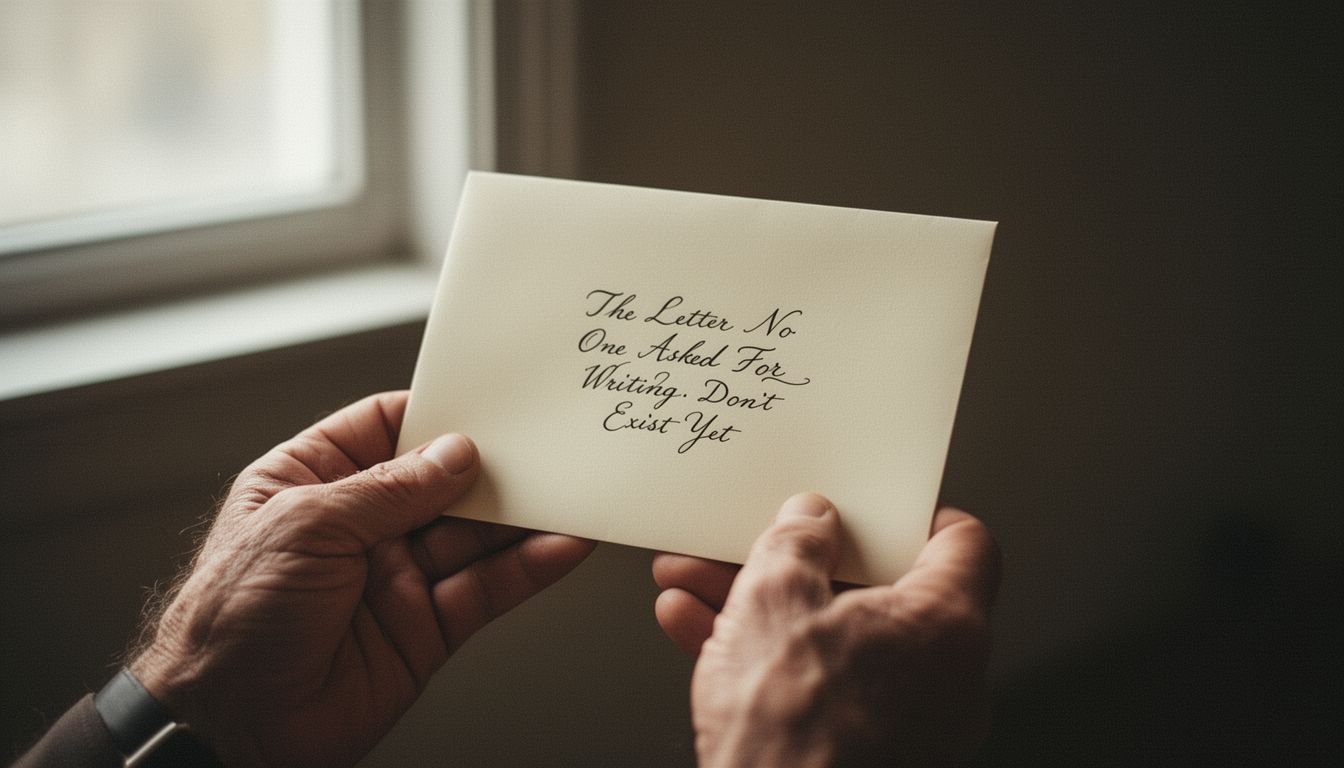 The Letter No
One Asked For
Writing. Don't
Exist Yet